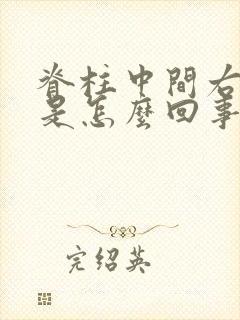 脊柱中間右
是怎麼回事
完绍英